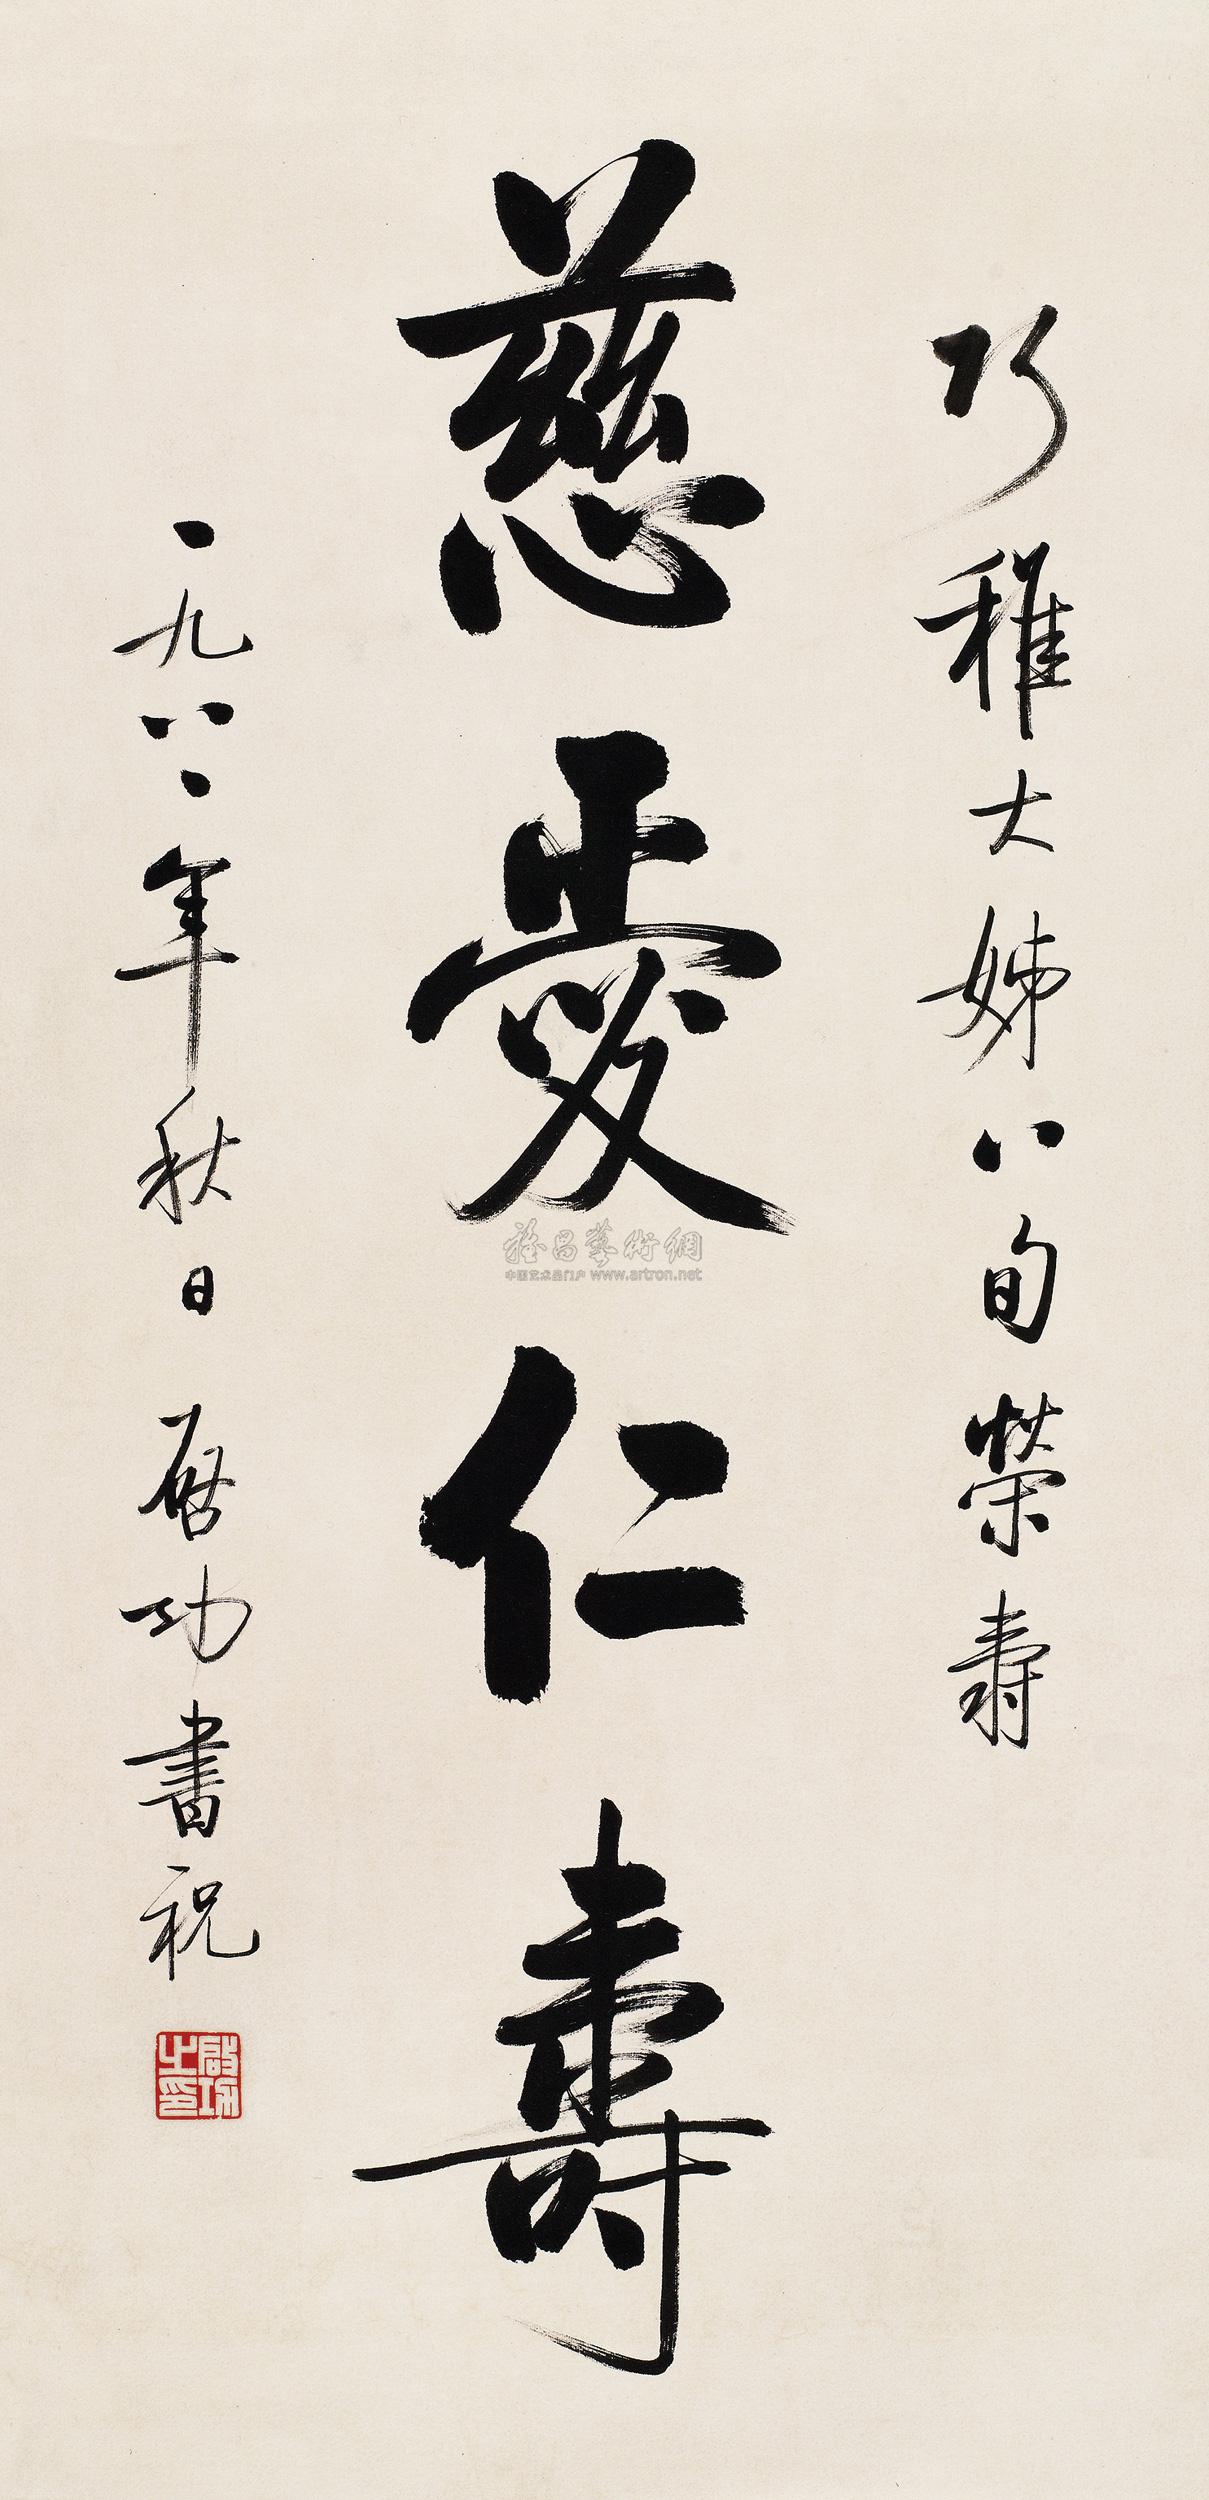 巧稚大姊八旬榮壽
慈愛仁壽
一九八一年秋日 啓功書祝
啓功之印
雅昌藝術網
中国艺术品门户 www.artron.net